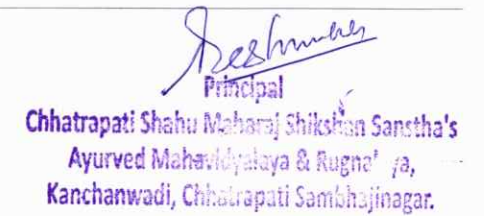 Principal
Chhatrapati Shahu Maharaj Shikshan Sanstha's
Ayurved Mahavidyalaya &
Kanchanwadi, Chhatrapati Sambhajinagar.